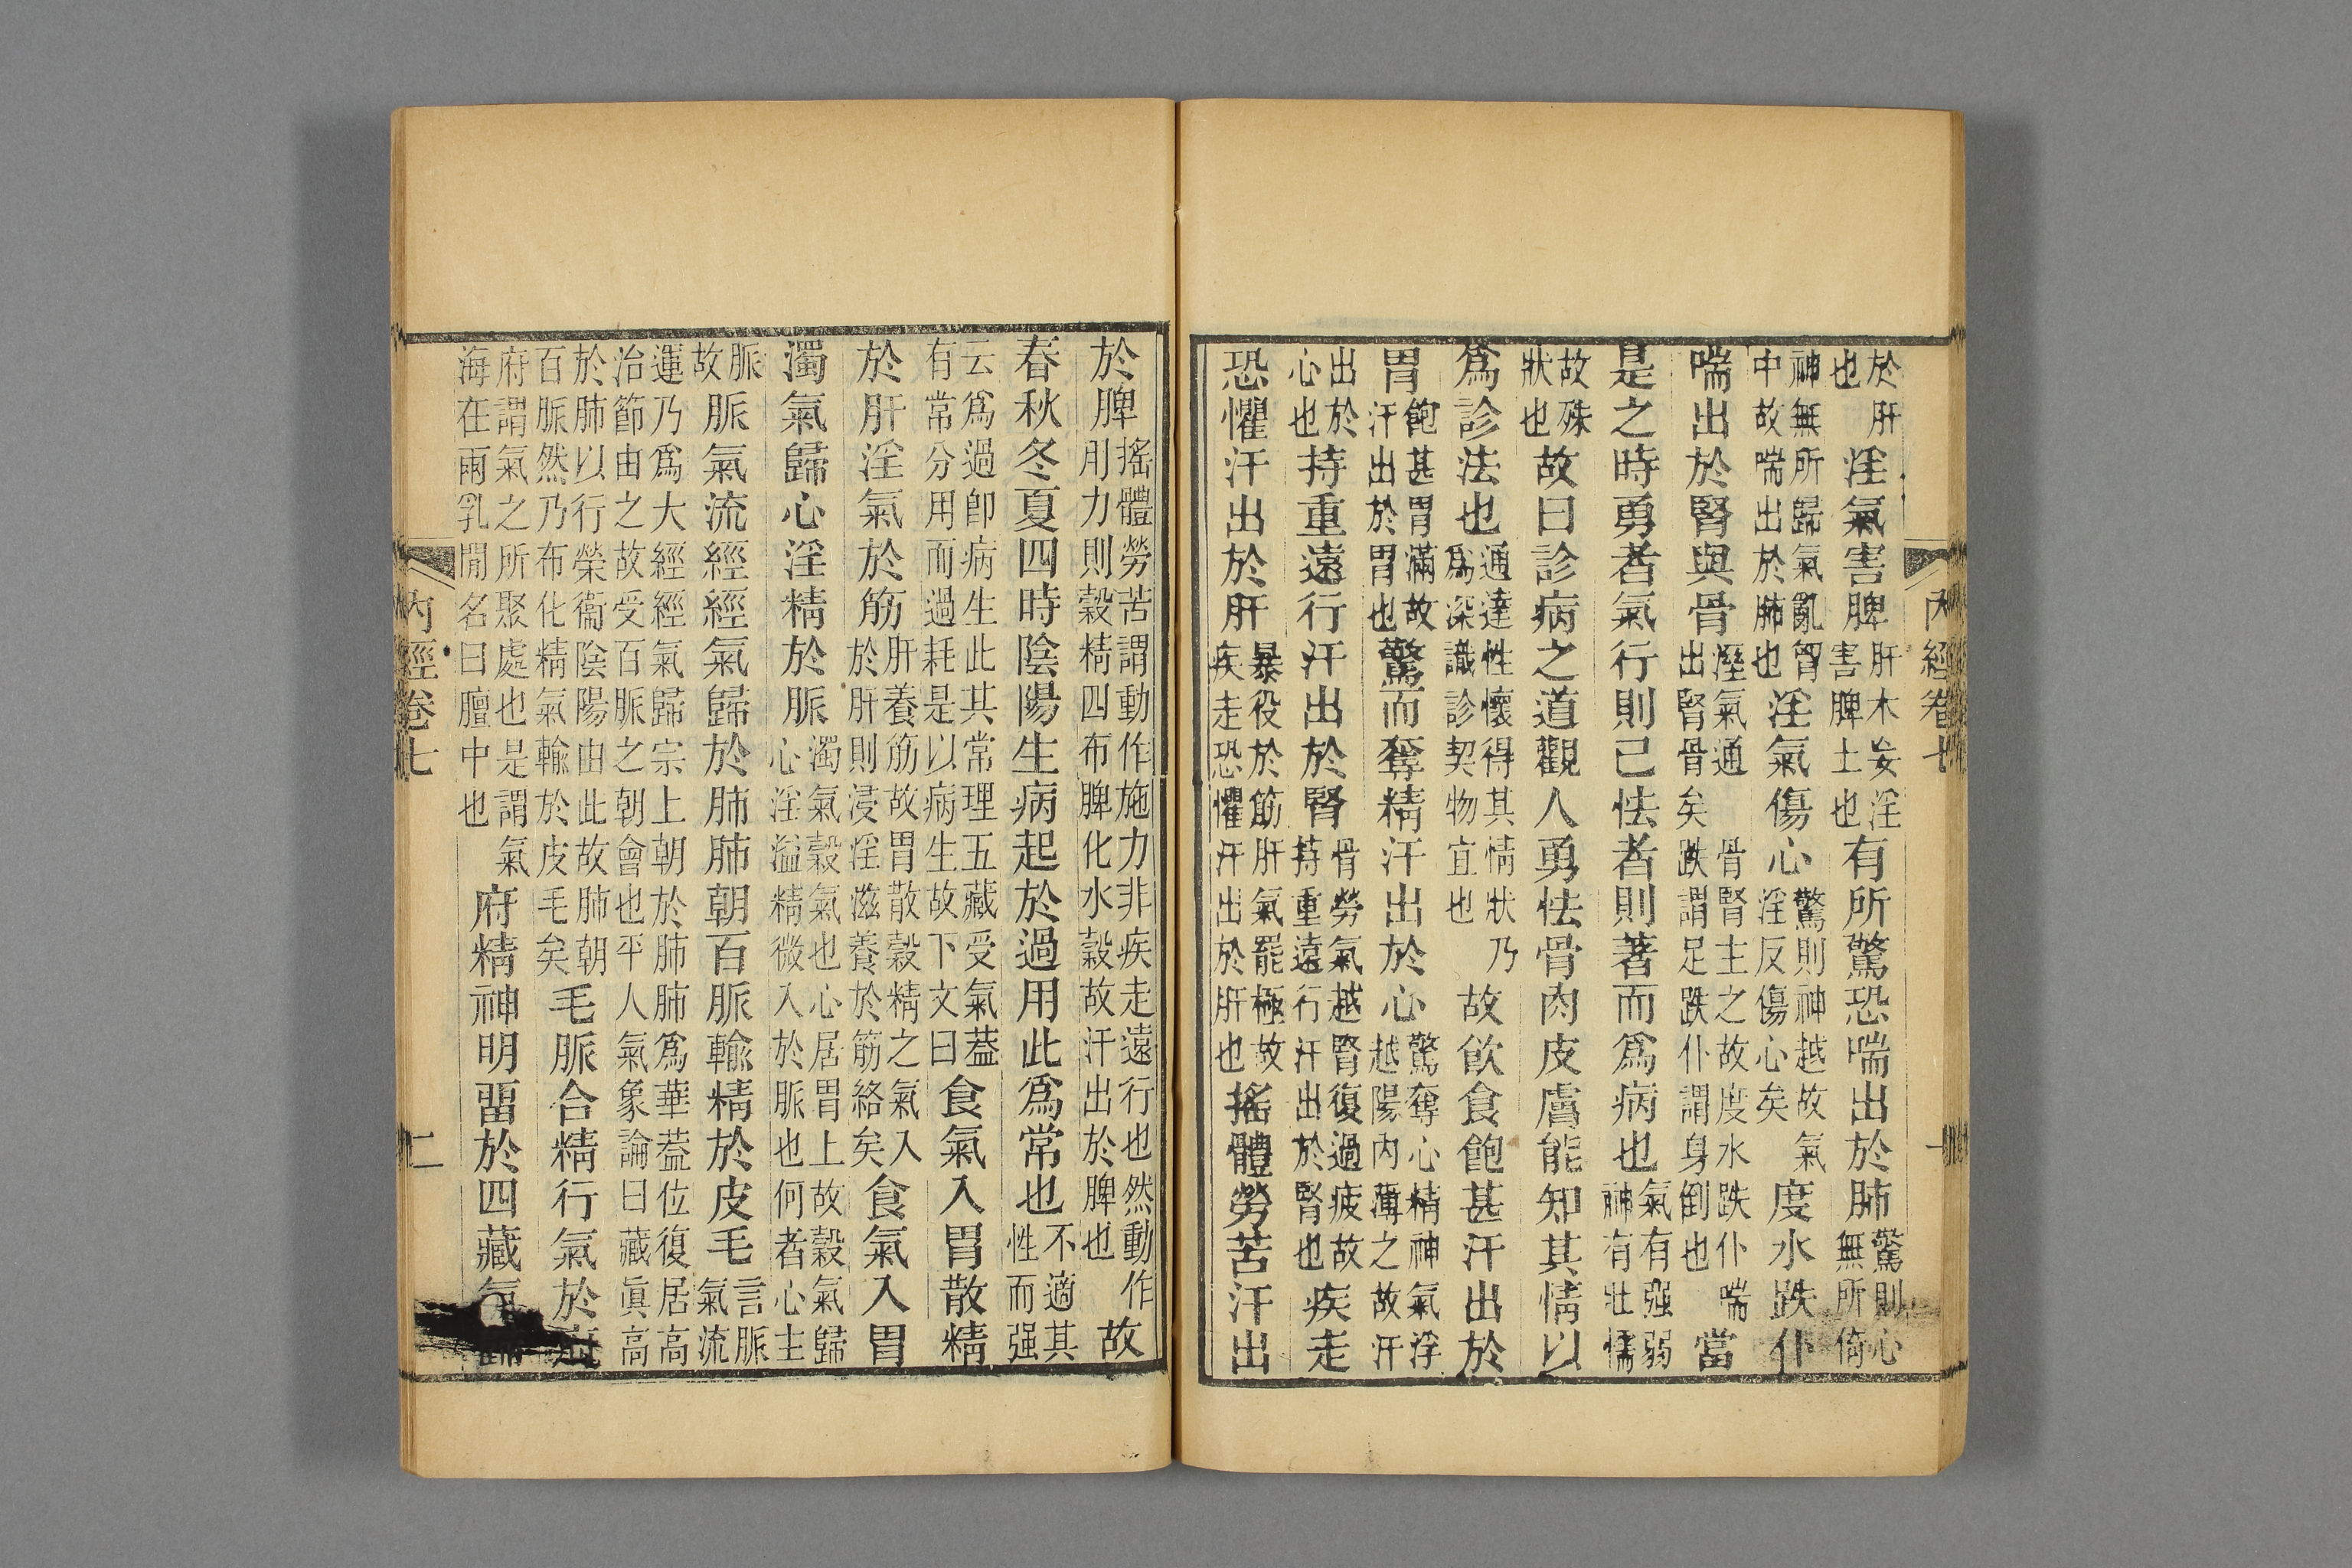 內經卷七
一
於肝也淫氣害脾肝木妄淫害脾土也有所驚恐喘出於肺驚則心無所倚
神無所歸氣亂胷中故喘出於肺也淫氣傷心驚則神越故氣淫反傷心矣度水跌仆
喘出於腎與骨溼氣通骨腎主之故度水跌仆喘出腎骨矣跌謂足跌仆謂身倒也當
是之時勇者氣行則已怯者則著而爲病也氣有强弱神有壯懦
故殊狀也故曰診病之道觀人勇怯骨肉皮膚能知其情以
爲診法也通達性懷得其情狀乃爲深識診契物宜也故飲食飽甚汗出於
胃飽甚胃滿故汗出於胃也驚而奪精汗出於心驚奪心精神氣浮越陽內薄之故汗
出於心也持重遠行汗出於腎骨勞氣越腎復過疲故持重遠行汗出於腎也疾走
恐懼汗出於肝暴役於筋肝氣罷極故疾走恐懼汗出於肝也搖體勞苦汗出
於脾搖體勞苦謂動作施力非疾走遠行也然動作用力則穀精四布脾化水穀故汗出於脾也故
春秋冬夏四時陰陽生病起於過用此爲常也不適其性而强
云爲過卽病生此其常理五藏受氣葢有常分用而過耗是以病生故下文曰食氣入胃散精
於肝淫氣於筋肝養筋故胃散穀精之氣入於肝則浸淫滋養於筋絡矣食氣入胃
濁氣歸心淫精於脈濁氣穀氣也心居胃上故穀氣歸心淫溢精微入於脈也何者心主
脈故脈氣流經經氣歸於肺肺朝百脈輸精於皮毛言脈氣流
運乃爲大經經氣歸宗上朝於肺肺爲華葢位復居高治節由之故受百脈之朝會也平人氣象論曰藏眞高
於肺以行榮衞陰陽由此故肺朝百脈然乃布化精氣輸於皮毛矣毛脈合精行氣於
府謂氣之所聚處也是謂氣海在兩乳閒名曰膻中也府精神明留於四藏氣
內經卷七
二